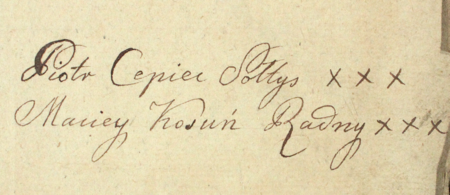 Piotr Cepiec Sołtys x x x
Maciey Kosuń Radny x x x